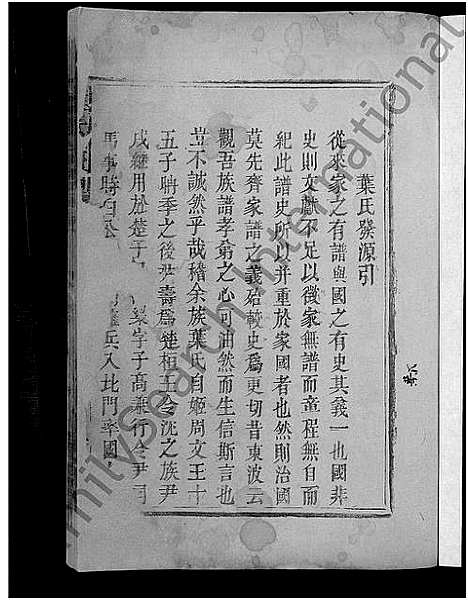 葉氏發源引
從來家之有譜與國之有史其義一也國非
史則文獻不足以徵家無譜而章程無自而
紀此譜史所以並重於家國者也然則治國
莫先齊家譜之義殆較史爲更切昔東波云
觀吾族譜孝弟之心可油然而生信斯言也
豈不誠然乎哉稽余族葉氏自姬周文王十
五子聃季之後 壽爲楚桓王令沈之族尹
戌繼用於楚于 梁字子高兼行令尹司
馬事時白公 兵入北門 國
FamilySearch International